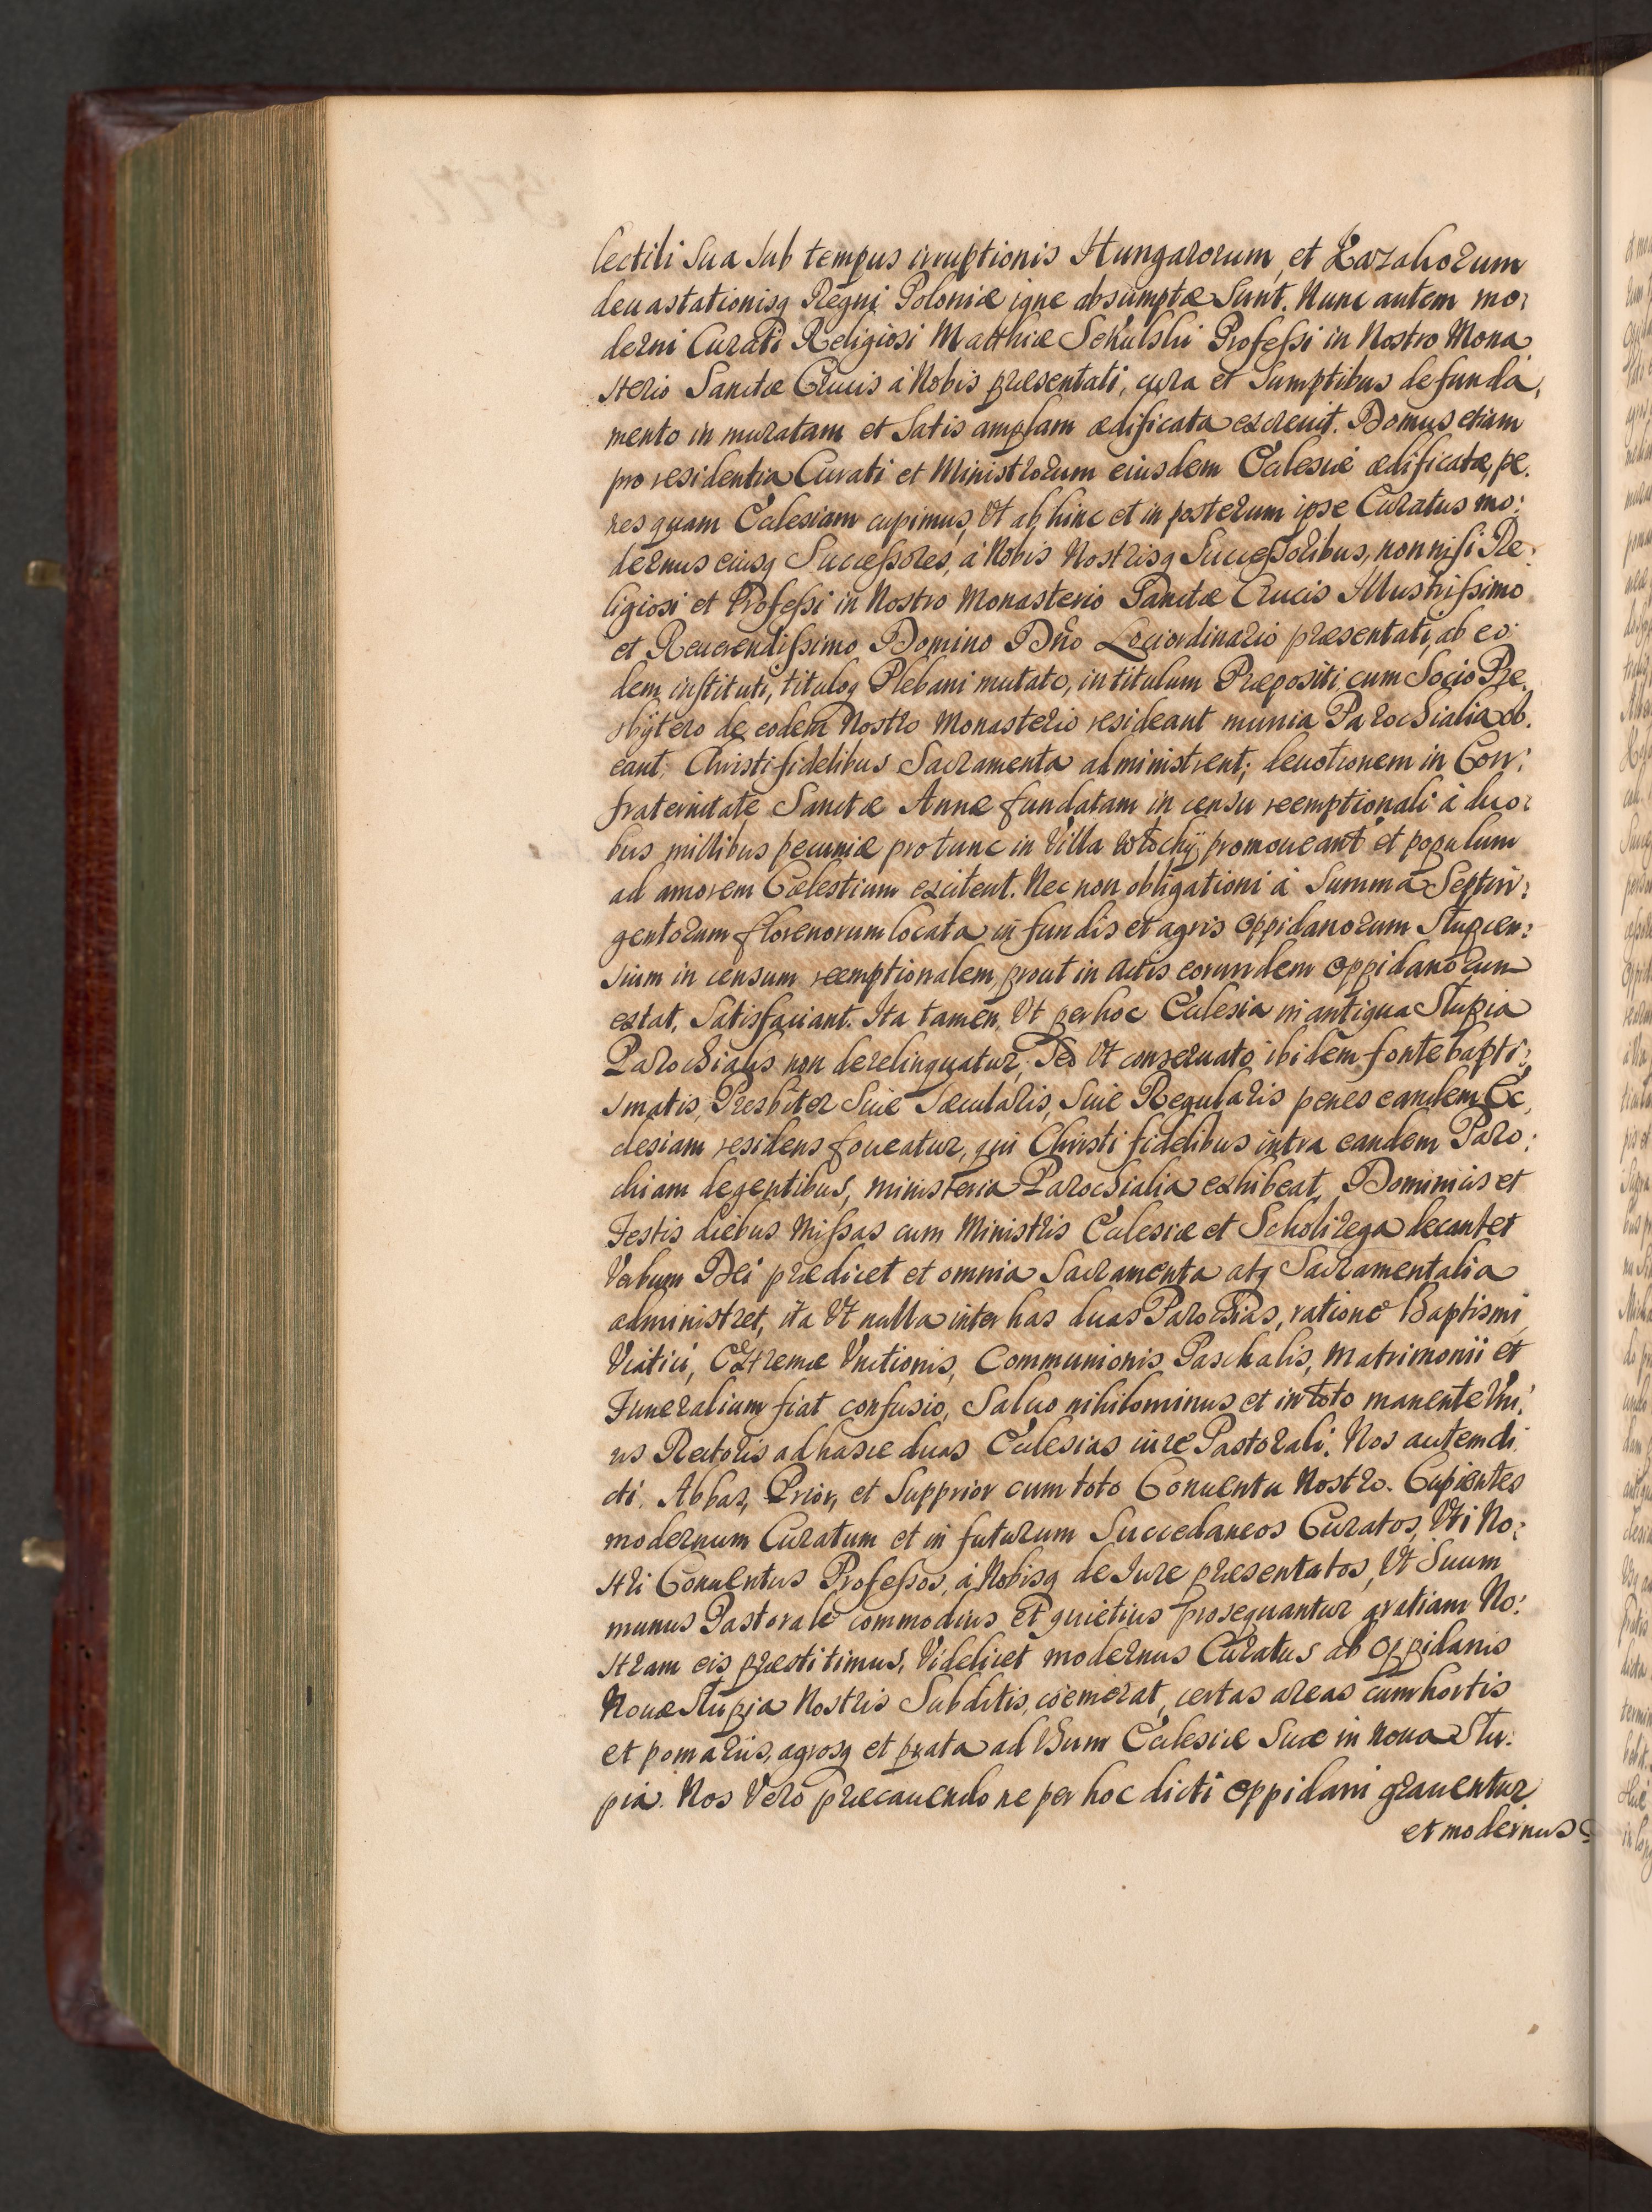 lectili sua sub tempus irruptionis Hungarorum, et Kozakorum
deuastationisq Regni Poloniæ igne absumptæ sunt. Nunc autem mo:
derni Curati Religiosi Matthiæ Sekulski Professi in Nostro Mona
sterio Sanctæ Crucis à Nobis præsentati, cura et sumptibus de funda,
mento in muratam et satis amplam ædificata excreuit. Domus etiam
pro residentia Curati et Ministrorum eiusdem Ecclesiæ ædificatæ, pe.
nes quam Ecclesiam cupimus, Vt ab hinc et in posterum ipse Curatus mo:
dernus eiusq Successores, à Nobis Nostrisq Successoribus, non nisi Re:
ligiosi et Professi in Nostro Monasterio Sanctæ Crucis Illustrissimo
et Reuerendissimo Domino Dño Lociordinario præsentati, ab eo:
dem instituti, tituloq Plebani mutato, in titulum Præpositi, cum Socio Pre.
sbÿtero de eodem Nostro Monasterio resideant munia Parochialia ob.
eant, Christi fidelibus Sacramenta administrent; deuotionem in Con:
fraternitate Sanctæ Annæ fundatam in censu reemptionali à duo:
bus millibus pecuniæ pro tunc in Villa Włochÿ, promoueant et populum
ad amorem Cœlestium excitent. Nec non obligationi à summa Septin:
gentorum florenorum locata in fundis et agris Oppidanorum Stupien:
sium in censum reemptionalem, prout in Actis eorundem Oppidanorum
extat, satisfaciant. Ita tamen, Vt per hoc Ecclesia in antiqua Stupia
Parochialis non derelinquatur, Sed Vt conseruato ibidem fonte bapti:
smatis, Presbiter Siue Sæcularis, Siue Regularis penes eandem Ec,
clesiam residens foueatur, qui Christi fidelibus intra eandem Paro:
chiam degentibus, ministeria Parochialia exhibeat, Dominicis et
Festis diebus Missas cum Ministris Ecclesiæ et Scholirega decantet
Verbum Dei prædicet et omnia Sacramenta atq Sacramentalia
administret, ita Vt nulla inter has duas Parochias, ratione Baptismi
Viatici, Extremæ Vnctionis, Communionis Paschalis, Matrimonii et
Funeralium fiat confusio, Saluo nihilominus et in toto manente Vni,
us Rectoris ad hasce duas Ecclesias iure Pastorali. Nos autem di
cti, Abbas, Prior, et Supprior cum toto Conuentu Nostro. Cupientes
modernum Curatum et in futurum Succedaneos Curatos, Vti No:
stri Conuentus Professos, à Nobisq de Iure præsentatos, Vt Suum
munus Pastorale commodius et quietius prosequantur gratiam No:
stram eis præstitimus, Videlicet modernus Curatus ab Oppidanis
Nouæ Stupia Nostris Subditis, coemerat, certas areas cum hortis
et pomariis, agrosq et prata ad Vsum Ecclesiæ Suæ in Noua Stu:
pia. Nos Vero præcauendo ne per hoc dicti Oppidani grauentur
et modernus